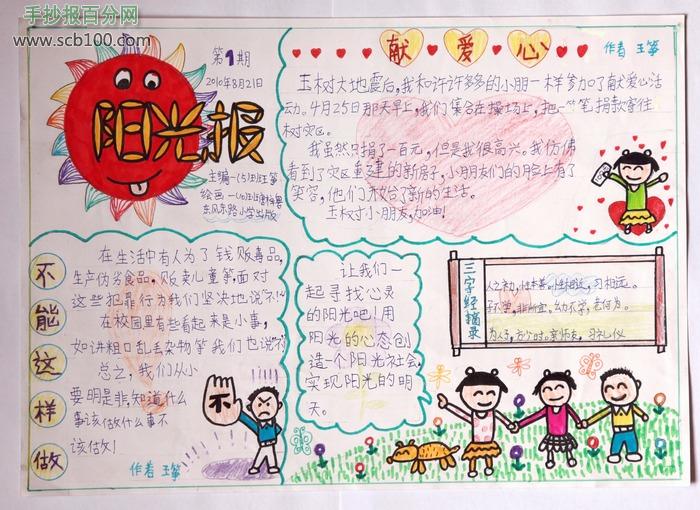 手抄报百分网
www.scb100.com
第1期
2010年8月21日
阳光报
主编
绘画
东风东路小学出版
献爱心
作者 王筝
玉树大地震后,我和许许多多的小朋一样参加了献爱心活
动。4月25日那天早上,我们集合在操场上,把一笔笔捐款寄往
树灾区。
我虽然只捐了一百元,但是我很高兴。我仿佛
看到了灾区重建的新房子,小朋友们的脸上有了
笑容,他们开始了新的生活。
玉树小朋友,加油!
不能这样做
在生活中有人为了钱贩毒品,
生产伪劣食品,贩卖儿童等,面对
这些犯罪行为我们坚决地说"不!"
在校园里有些看起来是小事,
如讲粗口乱丢杂物等我们也说"不"
总之,我们从小
要明是非,知道什么
事该做什么事不
该做!
作者 王筝
不
让我们一
起寻找心灵
的阳光吧!用
阳光的心态创
造一个阳光社会,
实现阳光的明
天。
三字经摘录
人之初,性本善。性相近,习相远。
子不学,非所宜。幼不学,老何为。
为人子,方少时。亲师友,习礼仪